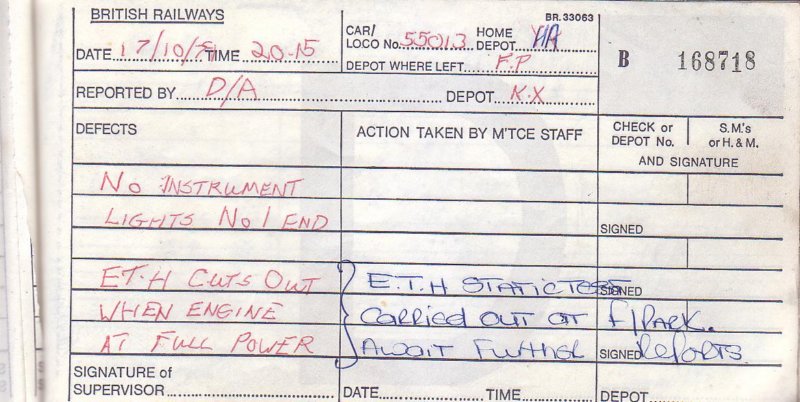 BRITISH RAILWAYS
BR. 33063
DATE 17/10/79 TIME 20-15
CAR/ LOCO No. 55013 HOME DEPOT HA
B 168718
DEPOT WHERE LEFT F.P
REPORTED BY D/A DEPOT K.X
DEFECTS
ACTION TAKEN BY M'TCE STAFF
CHECK or DEPOT No.
S.M.'s or H. & M.
AND SIGNATURE
NO INSTRUMENT
LIGHTS No 1 END
SIGNED
E.T.H CUTS OUT
WHEN ENGINE
AT FULL POWER
E.T.H STATIC TEST
CARRIED OUT AT F/PARK.
AWAIT FURTHER REPORTS.
SIGNED
SIGNED
SIGNATURE of
SUPERVISOR
DATE TIME DEPOT